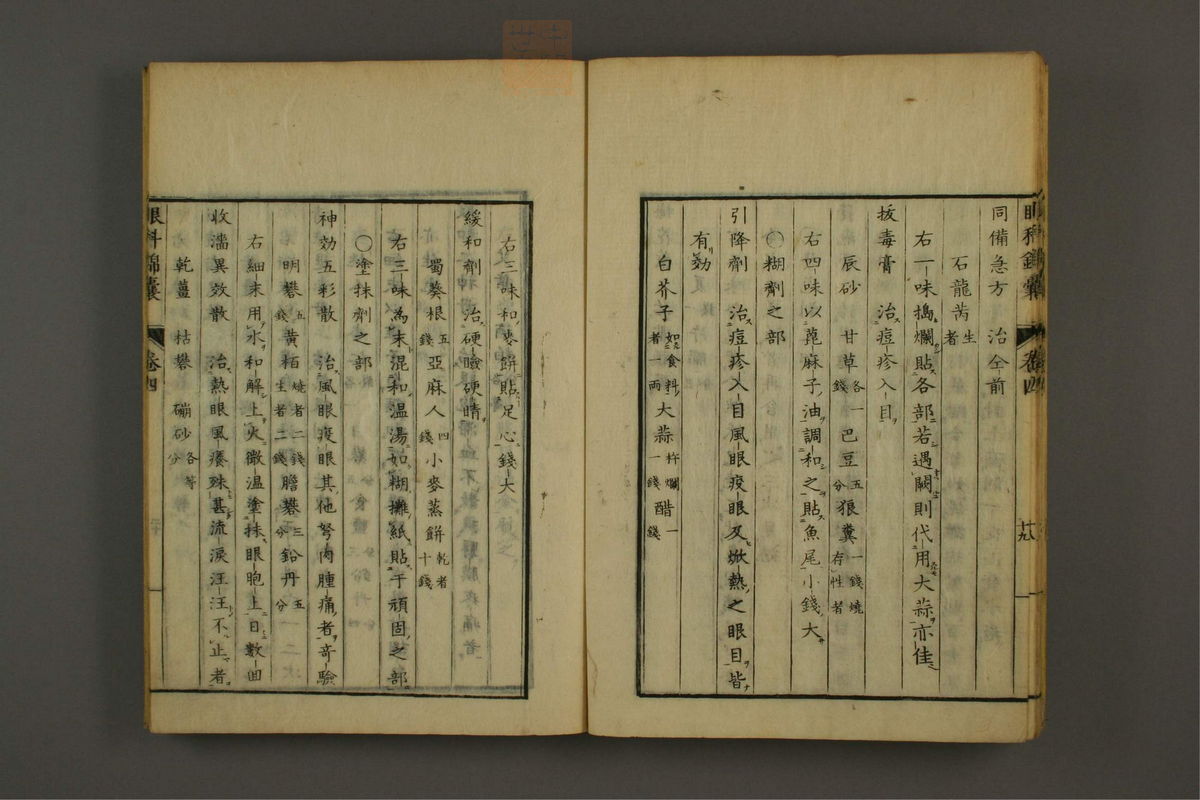 眼科錦囊 卷四 十九
同備急方 治仝前
石龍芮生者
右一味搗爛貼各部若遇闕則代用大蒜亦佳
拔毒膏 治痘疹入目
辰砂 甘草各一錢 巴豆五分 狼糞一錢燒存性者
右四味以蓖麻子油調和之貼魚尾小錢大
○糊劑之部
引降劑 治痘疹入目風眼疫眼及焮熱之眼目皆
有効
白芥子如食料者一兩 大蒜杵爛一錢 醋一錢
右三味和麥餅貼足心錢大
緩和劑 治硬瞼硬睛
蜀葵根五錢 亞麻人四錢 小麥蒸餅乾者十錢
右三味為末混和温湯如糊攤紙貼于頑固之部
○塗抹劑之部
神効五彩散 治風眼疫眼其他胬肉腫痛者奇驗
明礬五錢 黄栢燒者二錢生者二錢 膽礬三分 鉛丹五分
右細末用水和解上火微温塗抹眼胞上日數回
收濇異效散 治熱眼風癢殊甚流淚汪汪不止者
乾薑 枯礬 硼砂各等分
眼科錦囊 卷四